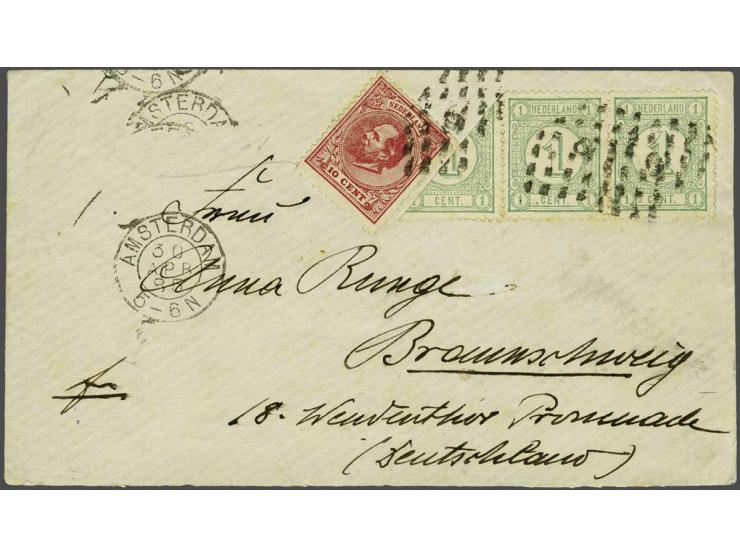 6 N
AMSTERDA
NEDERLAND
10 CENT
1 CENT. 1
1 NEDERLAND 1
1
1 CENT. 1
1 NEDERLAND 1
1
1 CENT. 1
Frau
AMSTERDAM
30
APR
5-6N
Anna Runge
Braunschweig
fr
18. Wendenthor Promenade
(Deutschland)